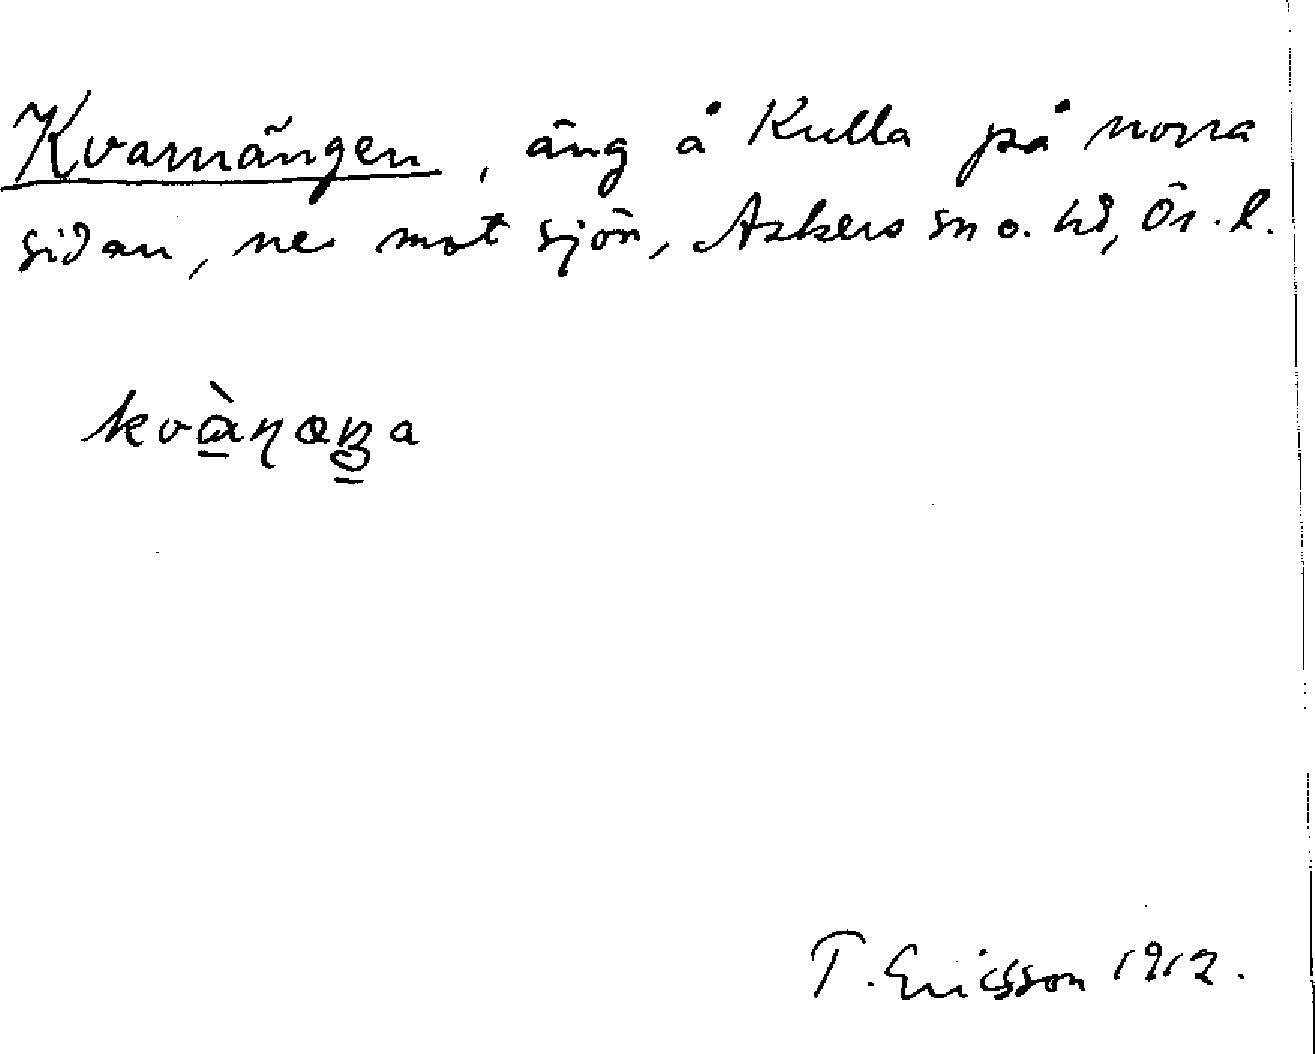 Kvarnängen, äng å Kulla på norra
sidan, ne mot sjön, Askers sn o. hd, Ör. l.
kvànæŋa
T. Ericsson 1912.